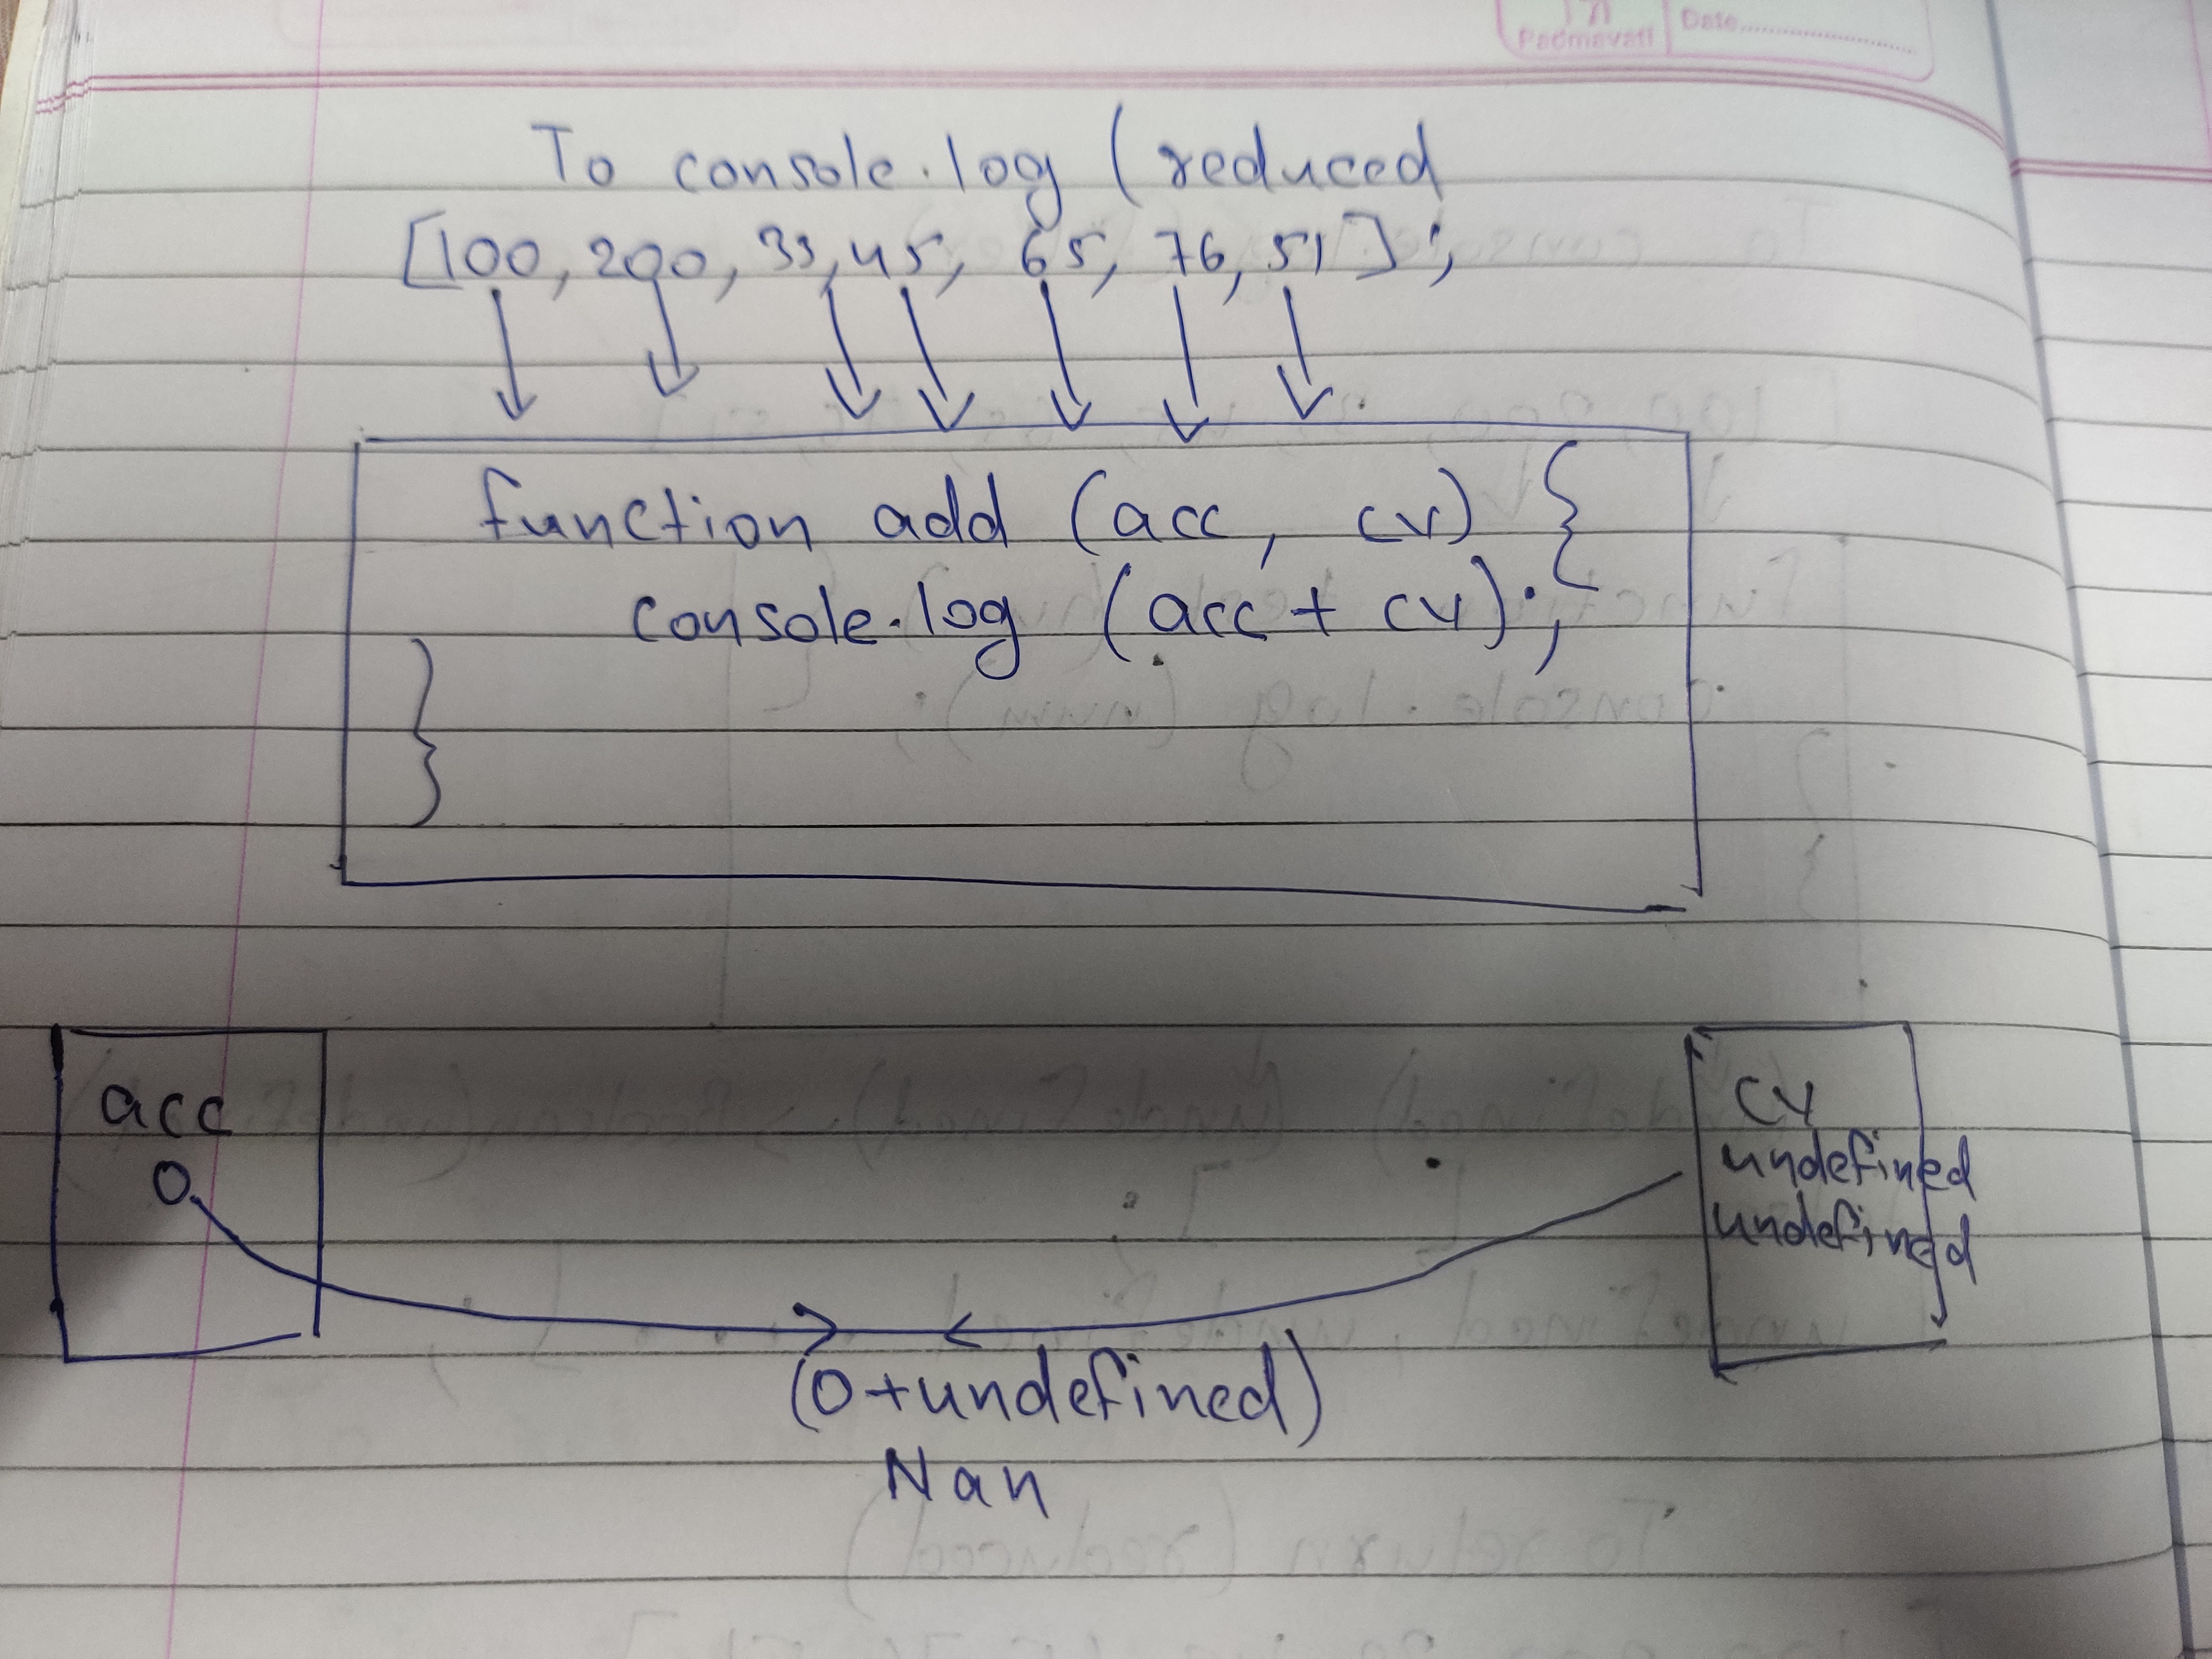 Padmavati
Date
To console.log (reduced
[100, 200, 33, 45, 65, 76, 51];
function add (acc, cv) {
console.log (acc + cv);
}
acc
0
cv
undefined
undefined
(0+undefined)
Nan